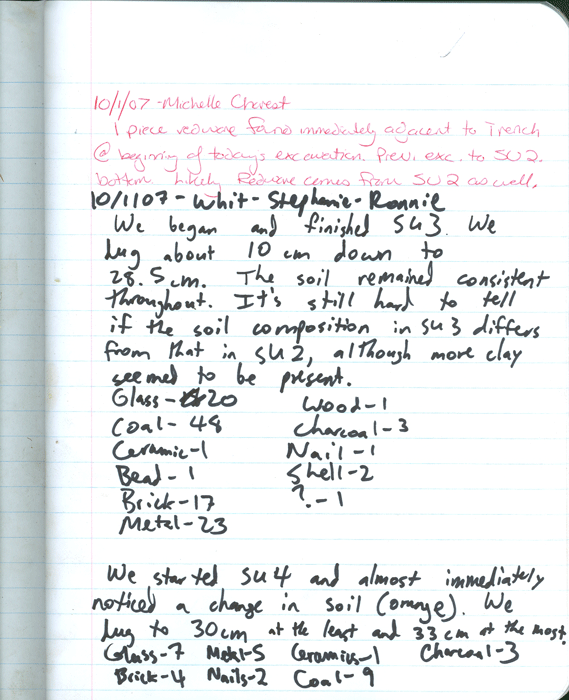 10/1/07 - Michelle Charest
1 piece redware found immediately adjacent to Trench
@ beginning of todays excavation. Prev. exc. to SU2.
bottom. Likely Redware comes from SU2 as well.
10/1/07 - Whit - Stephanie - Ronnie
We began and finished SU3. We
dug about 10 cm down to
28.5cm. The soil remained consistent
throughout. It's still hard to tell
if the soil composition in SU3 differs
from that in SU2, although more clay
seemed to be present.
Glass - 20 Wood - 1
Coal - 48 Charcoal - 3
Ceramic - 1 Nail - 1
Bead - 1 Shell - 2
Brick - 17 ? - 1
Metal - 23
We started SU4 and almost immediately
noticed a change in soil (orange). We
dug to 30cm at the least and 33cm at the most.
Glass - 7 Metal - 5 Ceramics - 1 Charcoal - 3
Brick - 4 Nails - 2 Coal - 9